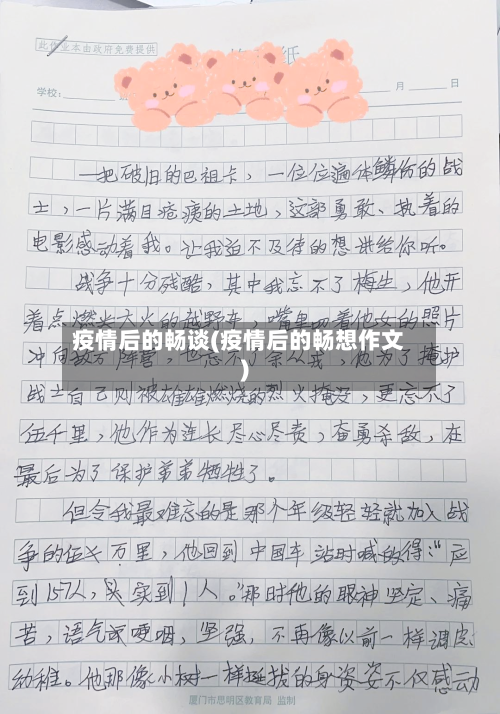 此作业本由政府免费提供
纸
学校: 月 日
一把破旧的巴祖卡，一位位遍体鳞伤的战
士，一片满目疮痍的土地，这部勇敢、执着的
电影感动着我。让我迫不及待的想讲给你听。
战争十分残酷，其中我忘不了梅生，他开
着点燃
疫情后的畅谈(疫情后的畅想作文
)
战士自己则被雄雄燃烧的烈火掩没，更忘不了
伍千里，他作为连长尽心尽责，奋勇杀敌，在
最后为了保护弟弟牺牲了。
但令我最难忘的是那个年级轻轻就加入战
争的伍万里，他回到中国车站时喊的得：“应
到157人，实到1人。”那时他的眼神坚定、痛
苦，语气哽咽，坚强，不再像以前一样调皮
幼稚。他那像小树一样挺拔的身资姿不仅感动
厦门市思明区教育局 监制